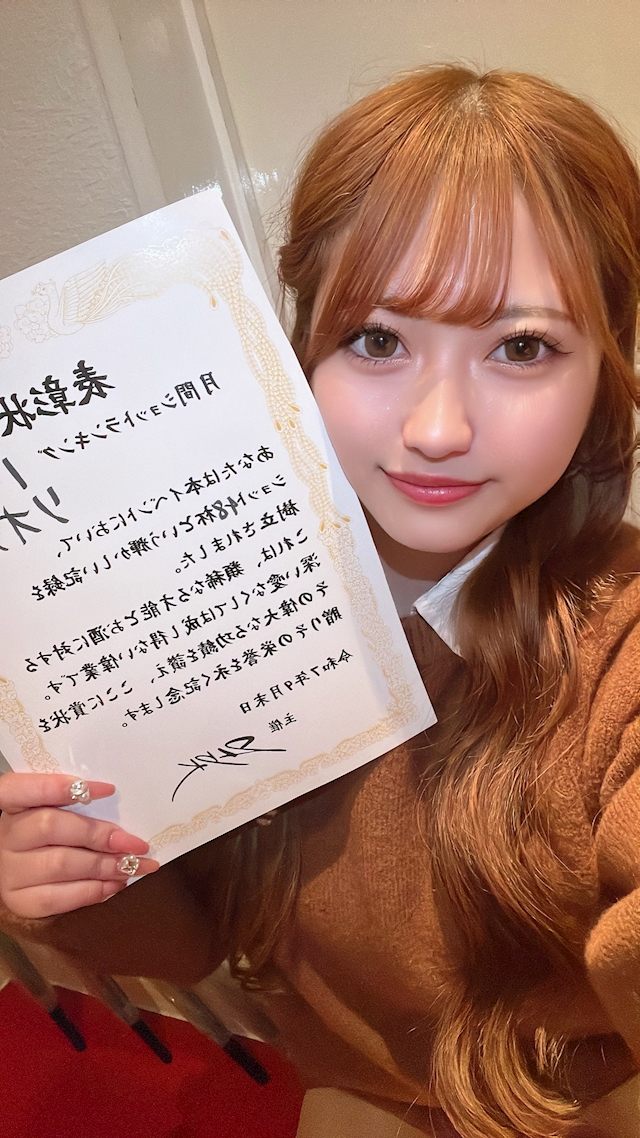 表彰状
月間ショットランキング
1
リオ
あなたは本イベントにおいて、
ショット48杯という輝かしい記録を
樹立されました。
これは、類稀なる才能とお酒に対する
深い愛なくしては成し得ない偉業です。
その偉大なる功績を讃え、ここに賞状を
贈りその栄誉を永く記念します。
令和7年9月末日
主催